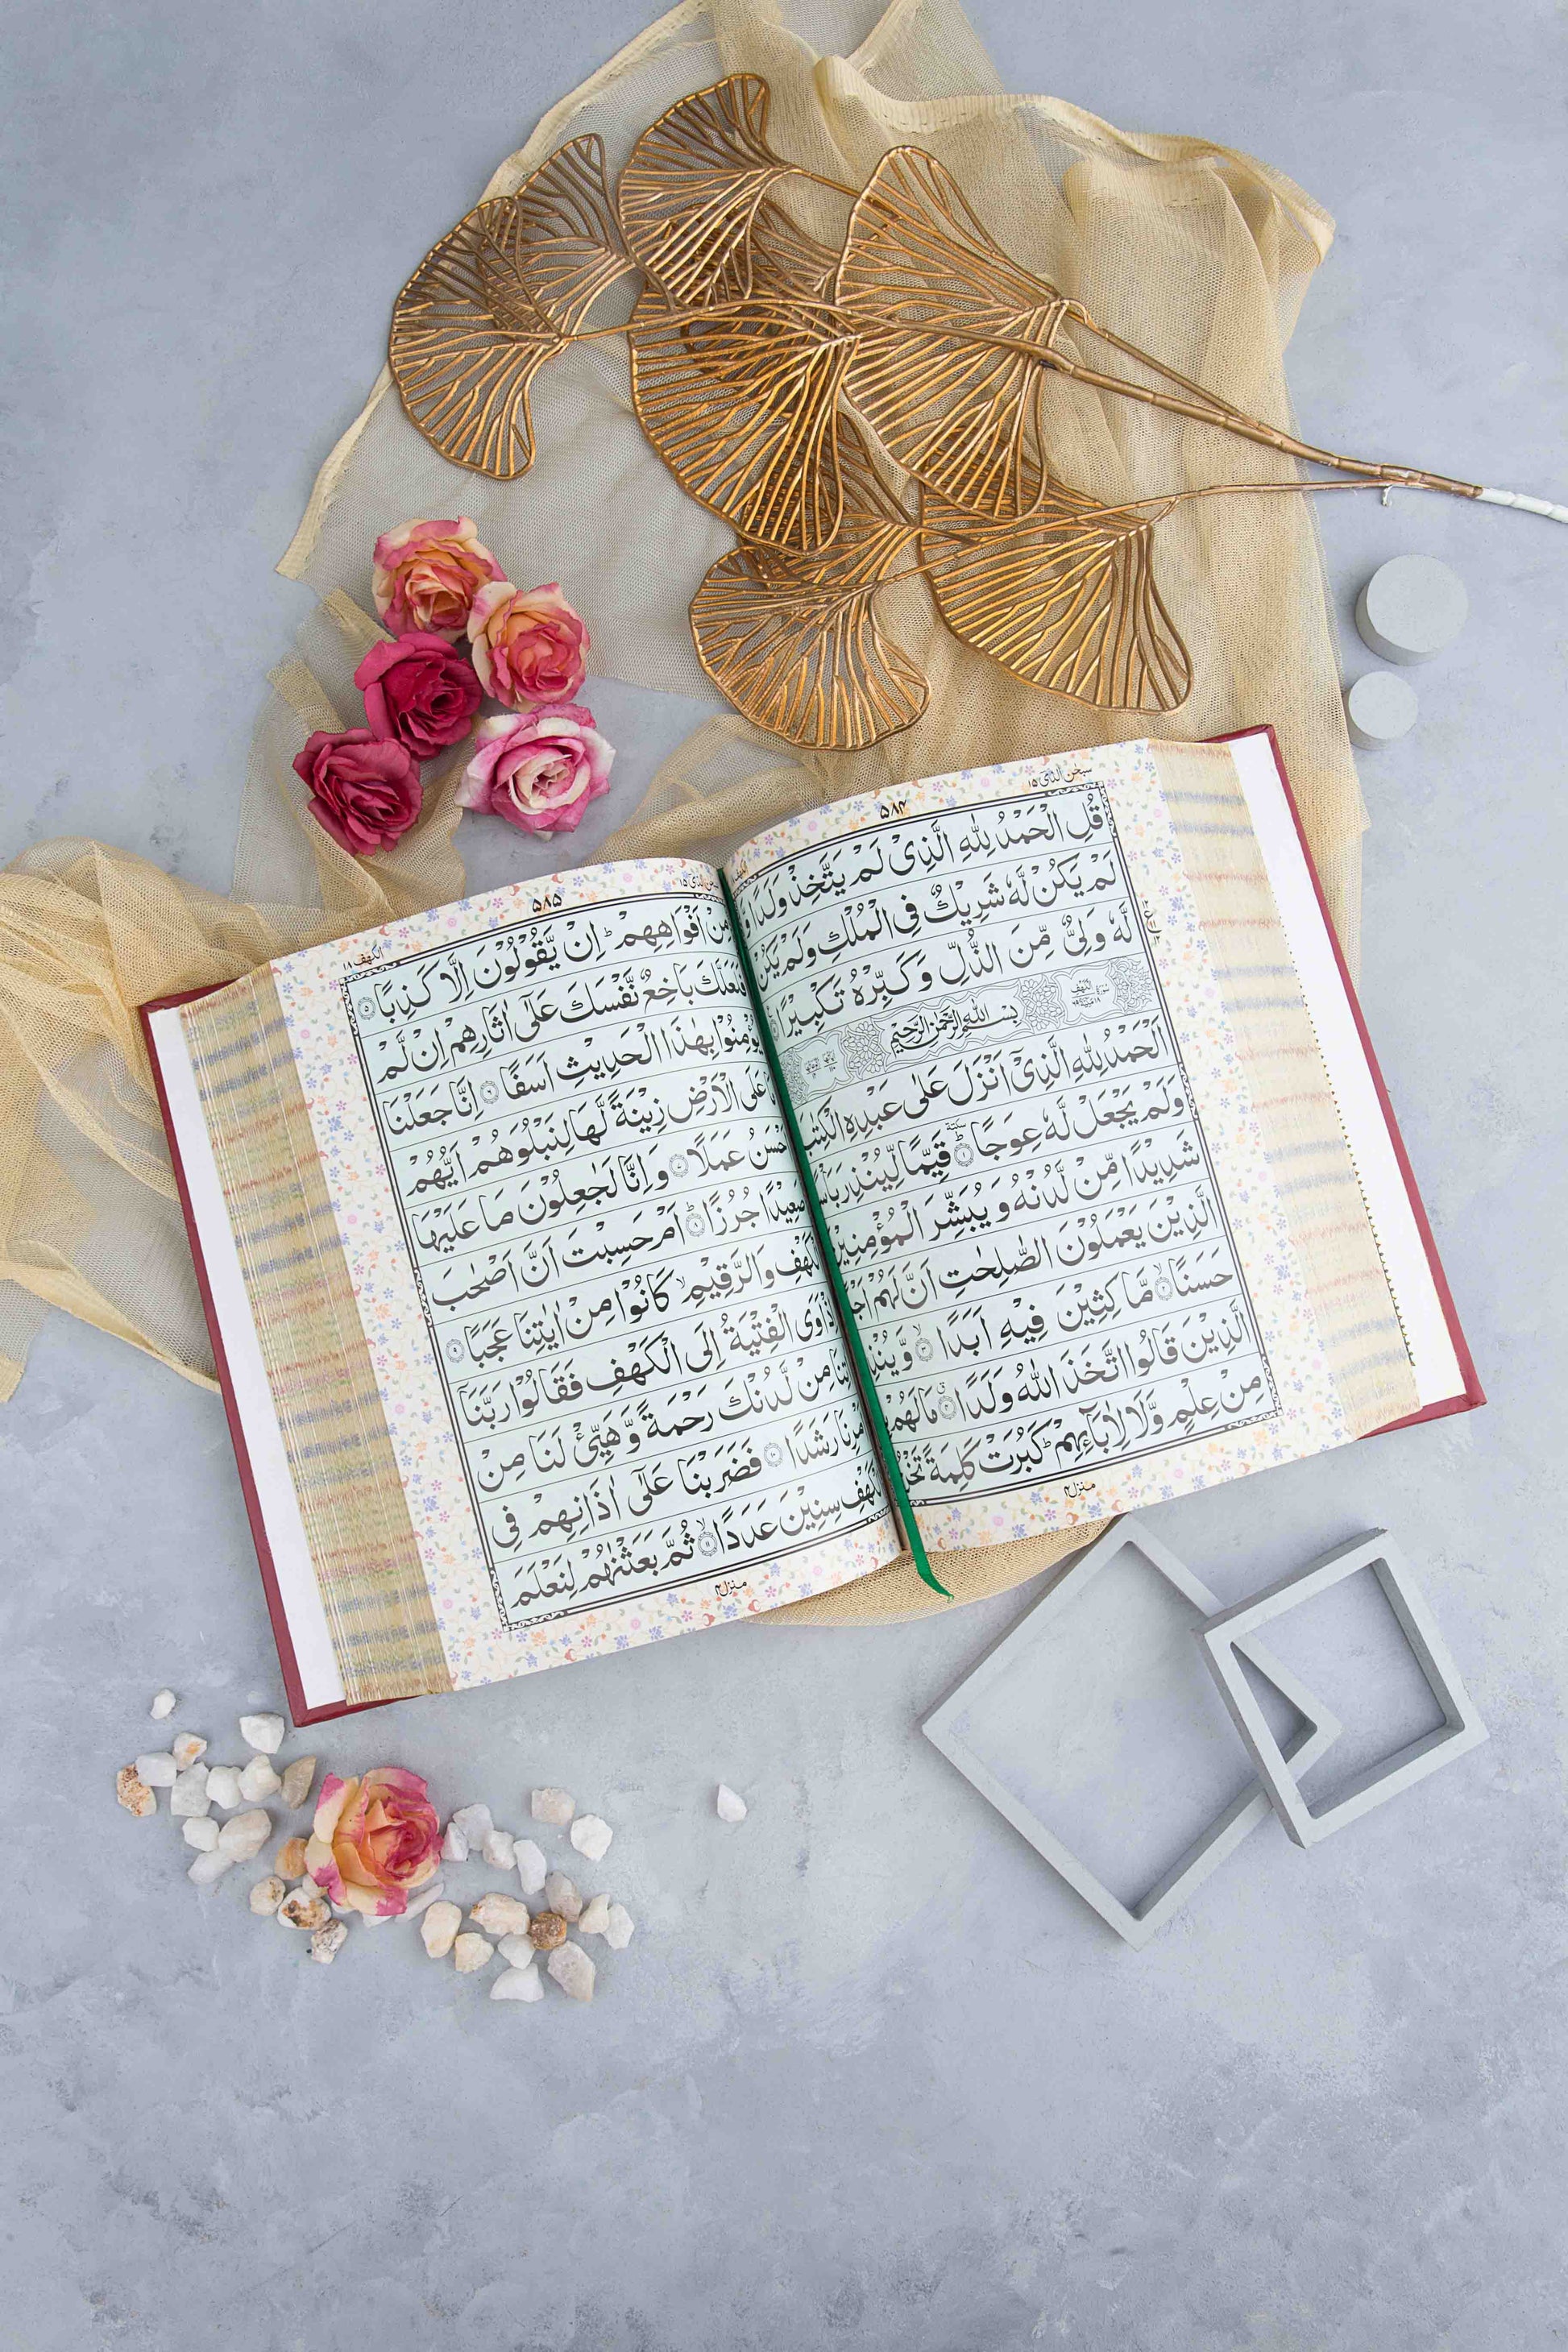 سبحن الذی ۱۵
۵۸۴
قُلِ الْحَمْدُ لِلّٰهِ الَّذِیْ لَمْ یَتَّخِذْ وَلَدًا وَّ
لَمْ یَكُنْ لَّهٗ شَرِیْكٌ فِی الْمُلْكِ وَلَمْ یَكُنْ
لَّهٗ وَلِیٌّ مِّنَ الذُّلِّ وَكَبِّرْهُ تَكْبِیْرًا
بِسْمِ اللّٰهِ الرَّحْمٰنِ الرَّحِیْمِ
اَلْحَمْدُ لِلّٰهِ الَّذِیْۤ اَنْزَلَ عَلٰی عَبْدِهِ الْكِتٰبَ
وَلَمْ یَجْعَلْ لَّهٗ عِوَجًا ؕ۱ قَیِّمًا لِّیُنْذِرَ بَاْسًا
شَدِیْدًا مِّنْ لَّدُنْهُ وَ یُبَشِّرَ الْمُؤْمِنِیْنَ
الَّذِیْنَ یَعْمَلُوْنَ الصّٰلِحٰتِ اَنَّ لَهُمْ
حَسَنًا ۙ۲ مَّا كِثِیْنَ فِیْهِ اَبَدًا ۙ۳ وَّ
الَّذِیْنَ قَالُوا اتَّخَذَ اللّٰهُ وَلَدًا ۴ مَا لَهُمْ
مِنْ عِلْمٍ وَّلَا لِاٰبَآئِهِمْ ؕ كَبُرَتْ كَلِمَةً
منزل۴
۵۸۵
الكهف ۱۸
مِنْ اَفْوَاهِهِمْ ؕ اِنْ یَّقُوْلُوْنَ اِلَّا كَذِبًا ۵
فَلَعَلَّكَ بَاخِعٌ نَّفْسَكَ عَلٰۤی اٰثَارِهِمْ اِنْ لَّمْ
یُؤْمِنُوْا بِهٰذَا الْحَدِیْثِ اَسَفًا ۶ اِنَّا جَعَلْنَا
عَلَی الْاَرْضِ زِیْنَةً لَّهَا لِنَبْلُوَهُمْ اَیُّهُمْ
اَحْسَنُ عَمَلًا ۷ وَ اِنَّا لَجٰعِلُوْنَ مَا عَلَیْهَا
صَعِیْدًا جُرُزًا ؕ۸ اَمْ حَسِبْتَ اَنَّ اَصْحٰبَ
الْكَهْفِ وَالرَّقِیْمِ ۙ كَانُوْا مِنْ اٰیٰتِنَا عَجَبًا ۹
اِذْ اَوَی الْفِتْیَةُ اِلَی الْكَهْفِ فَقَالُوْا رَبَّنَاۤ
اٰتِنَا مِنْ لَّدُنْكَ رَحْمَةً وَّهَیِّئْ لَنَا مِنْ
اَمْرِنَا رَشَدًا ۱۰ فَضَرَبْنَا عَلٰۤی اٰذَانِهِمْ فِی
الْكَهْفِ سِنِیْنَ عَدَدًا ۙ۱۱ ثُمَّ بَعَثْنٰهُمْ لِنَعْلَمَ
منزل۴